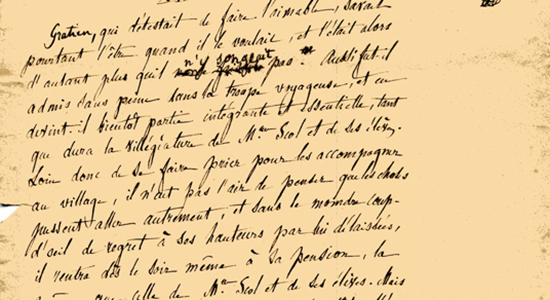 Gratien, qui détestait de faire l'aimable, savait
pourtant l'être quand il le voulait, et l'était alors
d'autant plus qu'il n'y songeait pas. Aussi fut-il
admis sans peine dans la troupe voyageuse, et en
devint-il bientôt partie intégrante et essentielle, tant
que dura la villégiature de Mr Scol et de ses élèves.
Loin donc de se faire prier pour les accompagner
au village, il n'eut pas l'air de penser que les choses
pussent aller autrement, et sans le moindre coup-
d'oeil de regret à ses hauteurs par lui délaissées,
il rentra dès le soir même à sa pension, la
de Mr Scol et de ses élèves. Mais